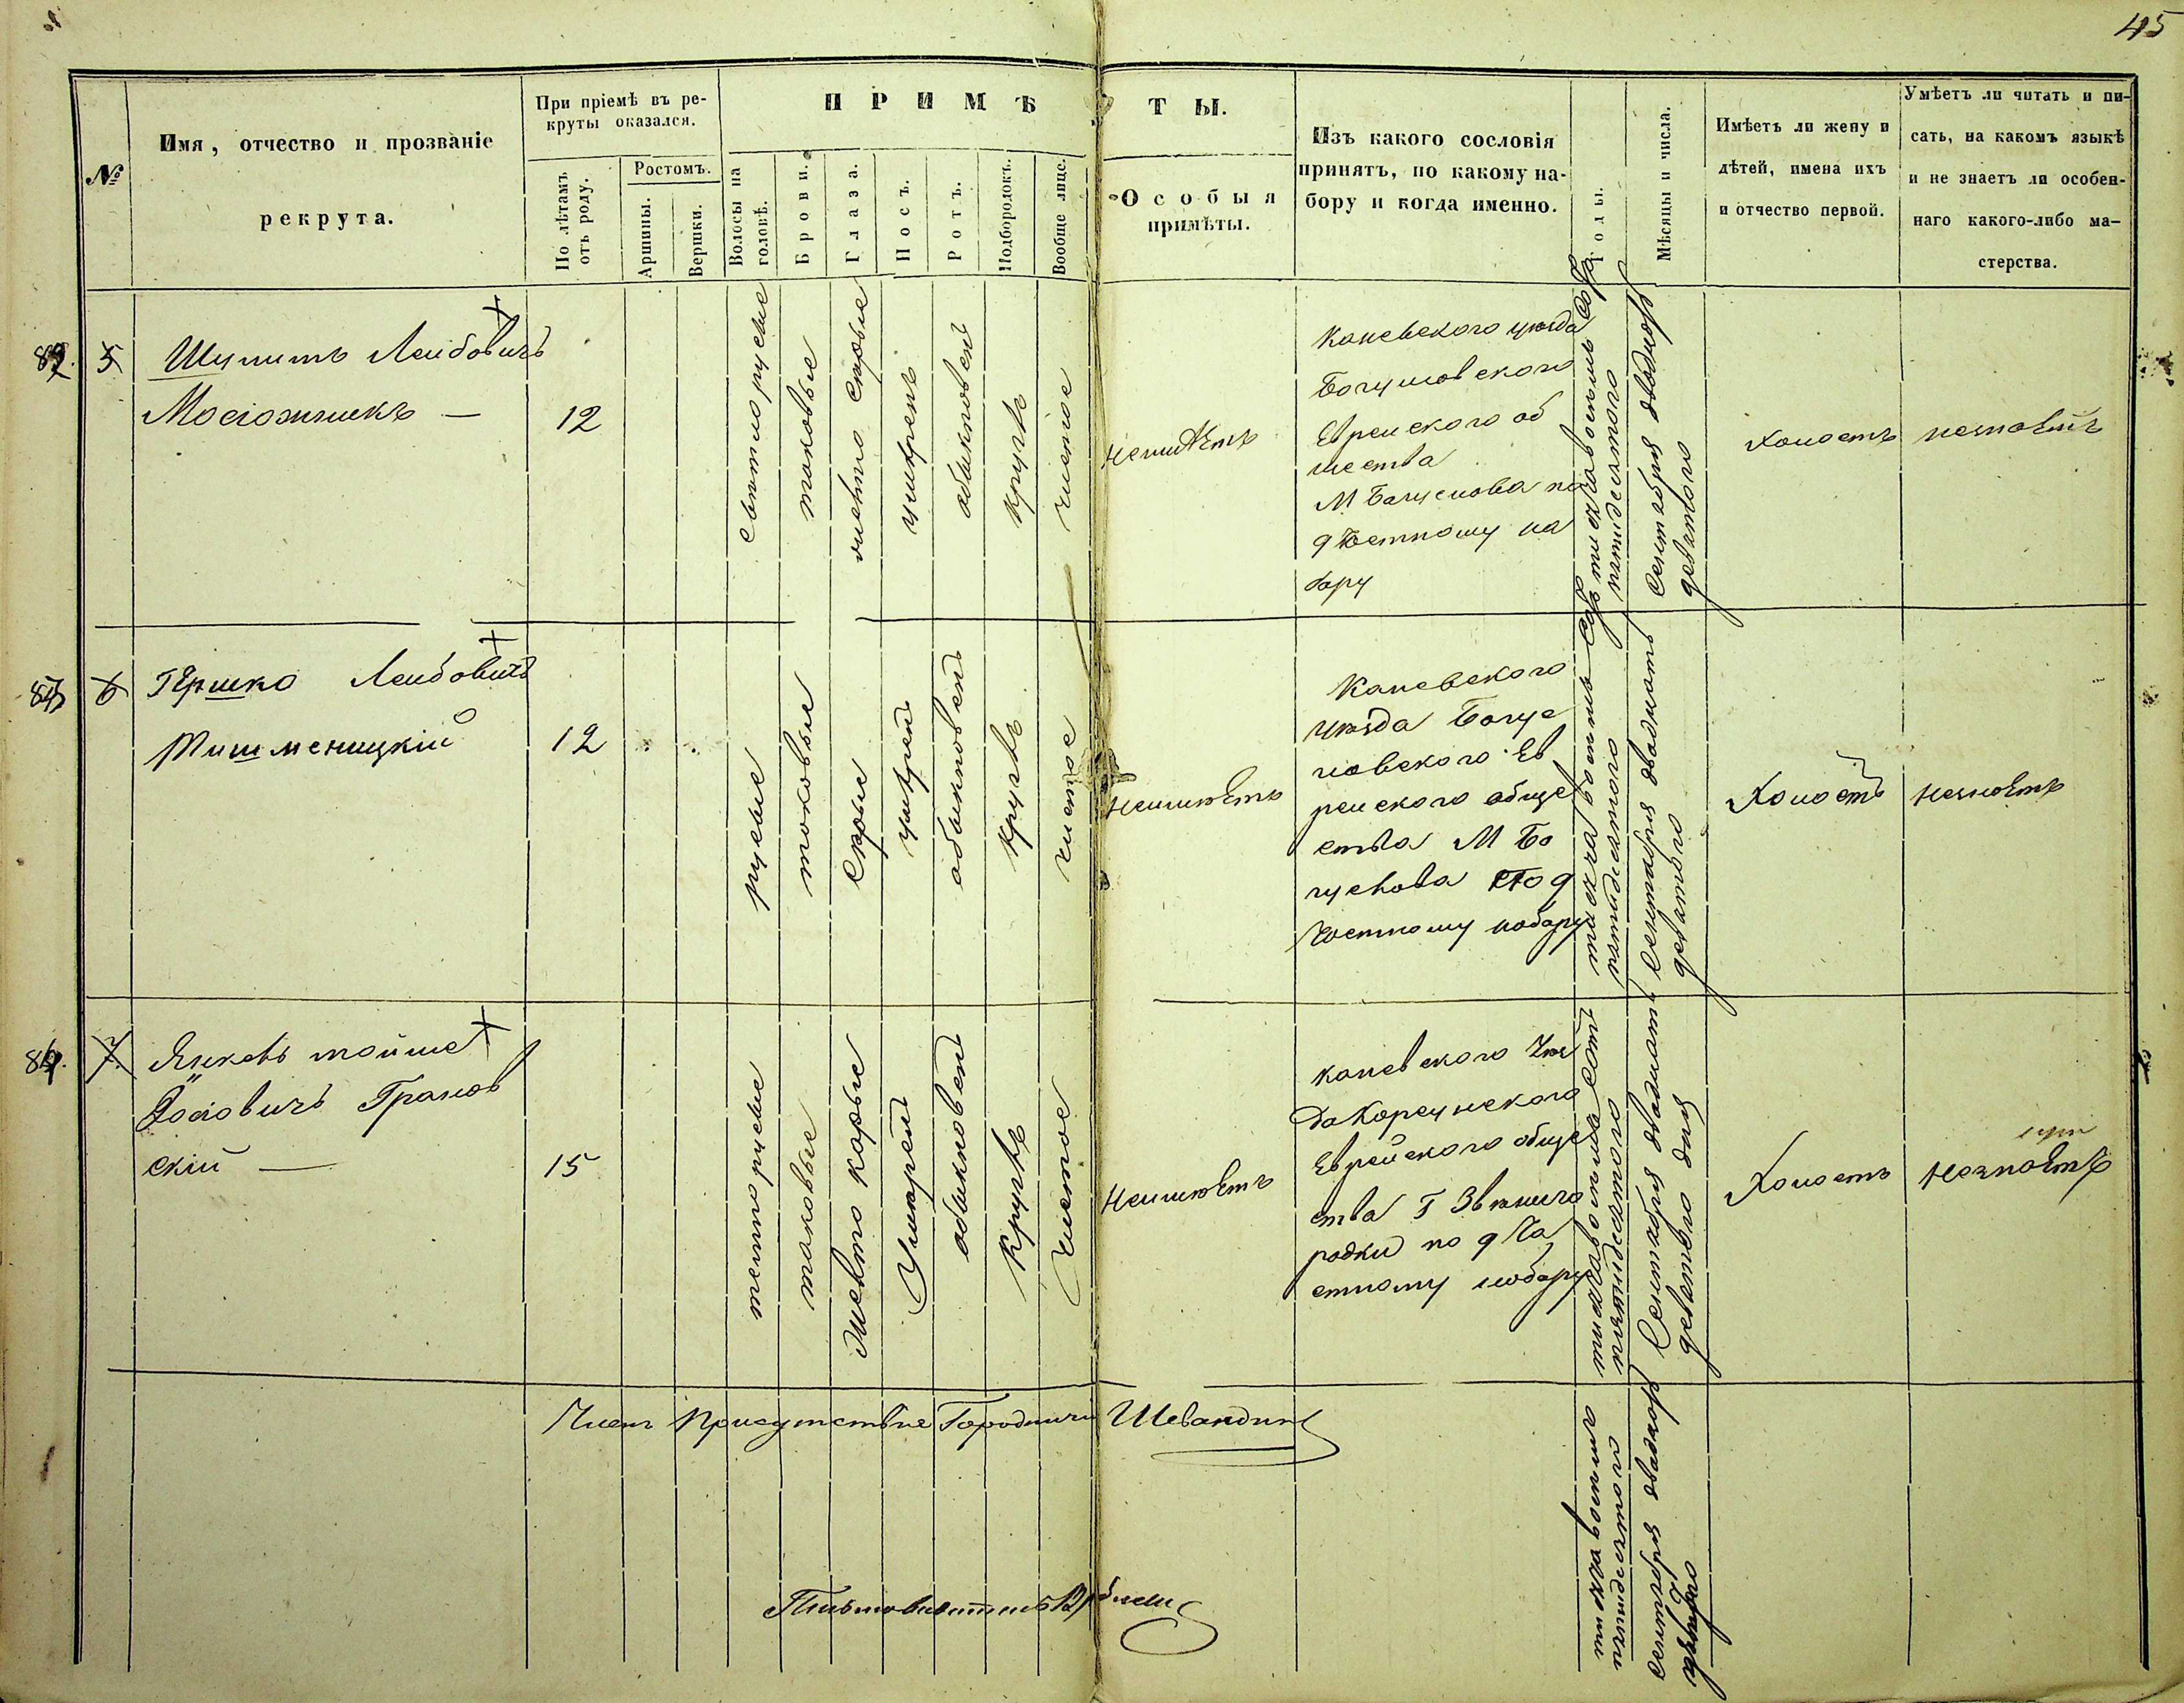 45
№
Имя, отчество и прозваніе
рекрута.
При пріемѣ въ ре-
круты оказался.
По лѣтамъ
отъ роду.
Ростомъ.
Аршины.
Вершки.
ПРИМѢТЫ.
Волосы на
головѣ.
Брови.
Глаза.
Носъ.
Ротъ.
Подбородокъ.
Вообще лице.
Особыя
примѣты.
Изъ какого сословія
принятъ, по какому на-
бору и когда именно.
Годы.
Мѣсяцы и числа.
Имѣетъ ли жену и
дѣтей, имена ихъ
и отчество первой.
Умѣетъ ли читать и пи-
сать, на какомъ языкѣ
и не знаетъ ли особен-
наго какого-либо ма-
стерства.
5
Лейбовичъ
12
свѣтлорусые
таковые
серые
умѣрен
обыкновен
круглъ
чистое
неимѣетъ
Каневского уезда
Богуславского
Еврейского об
щества
М Богуслова по
9 Частному на
бору
тысяча восемь сотъ
пятидесятого
Сентября двадцать
девятого
Холостъ
незнаетъ
6
Гершко Лейбовичъ
Тишменицкій
12
русые
таковые
серые
умѣрен
обыкновен
круглъ
чистое
неимѣетъ
Каневского
уезда Богус
ловского Ев
рейского обще
ства М Бо
гуслова По 9
Частному набору
тысяча восемь сотъ
пятидесятого
Сентября двадцать
девятого
Холостъ
незнаетъ
7
Янкевъ мойше
Іосіовичъ Гранов
скій —
15
темнорусые
таковые
карые
Умѣрен
обыкновен
Круглъ
Чистое
неимѣетъ
каневского Уез
да Корсунского
Еврейского обще
ства Г Звенигo
родки по 9 Ча
стному набору
тысяча восемь сотъ
пятидесятого
Сентября двадцать
девятого дня
Холостъ
незнаетъ
Членъ Присутствие Городничи Шевандин
тысяча восемь
пятидесятого
сентября двадцать